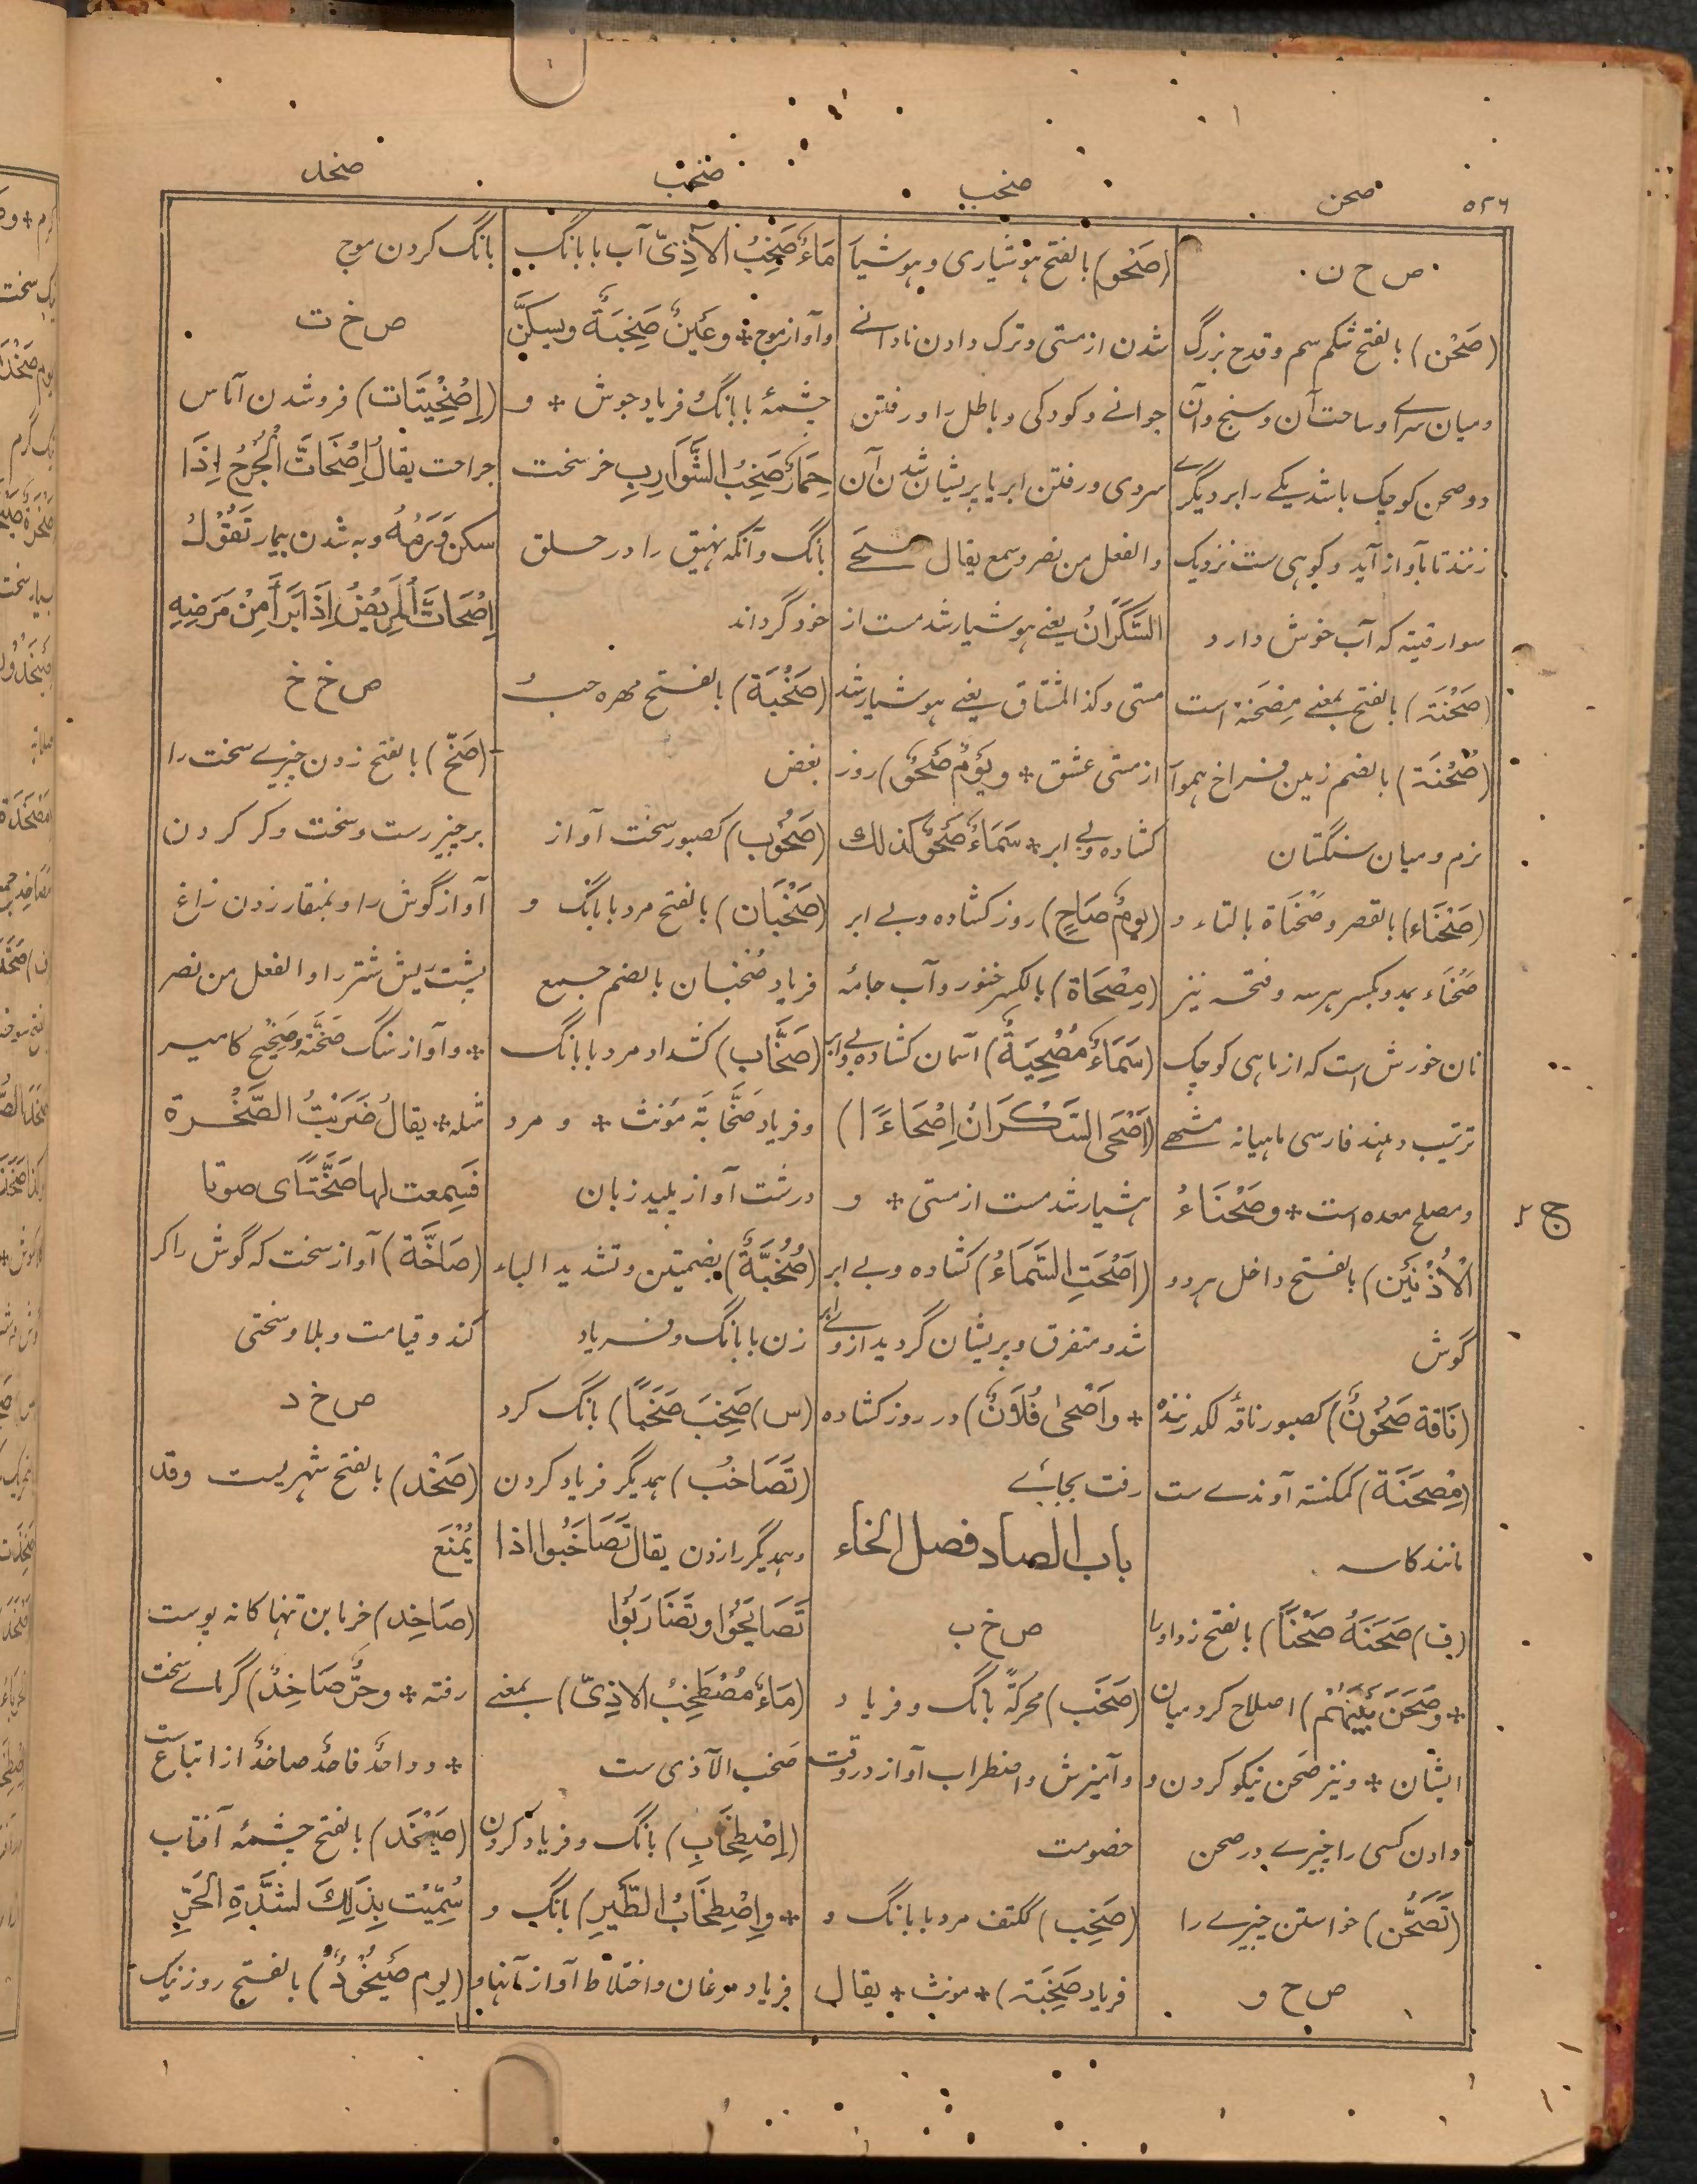 ۵۲۶
صحن
صخب
صخب
صخد
ص ح ن
(صَحْن) بالفتح شکم سم و قدح بزرگ
و میان سرای و ساحت آن و سنج و آن
دو صحن کوچک باشد یکے را بر دیگرے
زنند تا بآواز آید و کوهی ست نزدیک
سوارقیته که آب خوش دارد
(صَحْنَة) بالفتح بمعنے مِصْحَنَة است
(صُحْنَة) بالضم زمین فراخ هموار
نرم و میان سنگستان
(صَحْنَاء) بالقصر و صَحْنَاة بالتاء و
صَحْنَاء بمد و بکسر هر سه و فتحه نیز
نان خورش است که از ماهی کوچک
ترتیب دهند فارسی ماهیانه مشهے
و مصلح معده است * و صَحْنَاءُ
الْاُذْنَيْن) بالفتح داخل هر دو
گوش
(نَاقة صَحُوْنٌ) کصبور ناقۂ لگد زننده
(مِصْحَنَة) کمکنسة آوندے ست
مانند کاسه
(ف) صَحَنَهُ صَحْنًا) بالفتح زد او را
* وصَحَنَ بَيْنَهُمْ) اصلاح کرد میان
ایشان * و نیز صحن نیکو کردن و
دادن کسی را چیزے در صحن
(تَصَحُّن) خواستن چیزے را
ص ح و
(صَحْو) بالفتح هوشیاری و هوشیار
شدن از مستی و ترک دادن نادانے
جوانے و کودکی و باطل را و رفتن
سردی و رفتن ابر یا پریشان شدن آن
والفعل من نصر وسمع یقال صحے
السَّكْرَانُ یعنے هوشیار شد مست از
مستی وکذا المشتاق یعنے هوشیار شد
از مستی عشق * ویَوْمٌ صَحْوٌ) روز
کشاده و بے ابر * سَمَاءٌ صَحْوٌ کذلك
(یومٌ صَاحٍ) روز کشاده و بے ابر
(مِصْحَاة) بالکسر خنور و آب جامه
(سَمَاءٌ مُصْحِيَةٌ) آسمان کشاده و بے ابر
(اَصْحَی السَّكْرَانُ اِصْحَاءً)
هشیار شد مست از مستی * و
(اَصْحَتِ السَّمَاءُ) کشاده و بے ابر
شد و متفرق و پریشان گردید از وے ابر
* واَصْحیٰ فُلَانٌ) در روز کشاده
رفت بجائے
باب الصاد فصل الخاء
ص خ ب
(صَخَب) محرکةً بانگ و فریاد
و آمیزش و اضطراب آواز در وقت
خصومت
(صَخِب) ککتف مرد با بانگ و
فریاد صَخِبَة) * مونث * یقال
مَاءٌ صَخِبُ الآذِیّ آب با بانگ
و آواز موج * وعَيْنٌ صَخِبَةٌ ویسکَّن
چشمۂ با بانگ و فریاد جوش * و
حِمَارٌ صَخِبُ الشَّوَارِبِ خر سخت
بانگ و آنکه نهیق را در حلق
خود گرداند
(صَخْبَة) بالفتح مهره حب
بغض
(صَخُوْب) کصبور سخت آواز
(صَخْبَان) بالفتح مرد با بانگ و
فریاد صُخبان بالضم جمع
(صَخَّاب) کشداد مرد با بانگ
و فریاد صَخَّابَة مؤنث * و مرد
درشت آواز پلید زبان
(صُخُبَّةٌ) بضمتین و تشدید الباء
زن با بانگ و فریاد
(س) صَخِبَ صَخَبًا) بانگ کرد
(تَصَاخُب) همدیگر فریاد کردن
و همدیگر را زدن یقال تَصَاخَبُوا اذا
تَصَايَحُوْا وتَضَارَبُوْا
(مَاءٌ مُصْطَخِبُ الاٰذِیّ) بمعنے
صَخب الآذی ست
(اِصْطِخَاب) بانگ و فریاد کردن
* واِصْطِخَابُ الطَّيْر) بانگ و
فریاد مرغان و اختلاط آواز آنها و
بانگ کردن موج
ص خ ت
(اِصْخِيْتَات) فروشدن آماس
جراحت یقالُ اِصْخَاتَّ الْجُرْحُ اِذَا
سکن وَرَمُهُ و به شدن بیمار تَقُوْلُ
اِصْخَاتَّ الْمَرِيْضُ اِذَا بَرَأَ مِنْ مَرَضِهٖ
ص خ خ
(صَخّ) بالفتح زدن چیزے سخت را
بر چیز رست و سخت و کر کردن
آواز گوش را و بمنقار زدن زاغ
پشت ریش شتر را والفعل من نصر
* و آواز سنگ صَخَّة وصَخِيْخ کامیر
مثله * یقالُ ضَرَبْتُ الصَّخْرة
فَسَمِعت لها صَخَّةً ای صوتا
(صَاخَّة) آواز سخت که گوش را کر
کند و قیامت و بلا و سختی
ص خ د
(صَخْد) بالفتح شهریست وقد
يُمْنَع
(صَاخِد) خرما بن تنها کانه پوست
رفته * وحَرٌّ صَاخِدٌ) گرماے سخت
* و واحدٌ فاحدٌ صاخدٌ از اتباع ست
(صَيْخَد) بالفتح چشمۂ آفتاب
سُمِّيَتْ بِذٰلِكَ لشدّةِ الحَرِّ
(یوم صَيْخُوْدٌ) بالفتح روز نیک
ج ۲